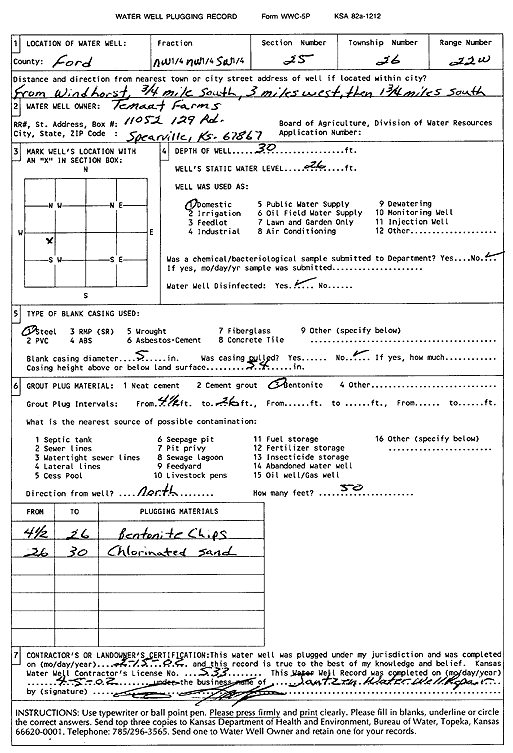 WATER WELL PLUGGING RECORD Form WWC-5P KSA 82a-1212
1 LOCATION OF WATER WELL: Fraction Section Number Township Number Range Number
County: Ford NW1/4 NW1/4 SW1/4 25 26 22W
Distance and direction from nearest town or city street address of well if located within city?
From Windhorst, 3/4 mile South, 3 miles west, then 1 3/4 miles South
2 WATER WELL OWNER: Temaat Farms
RR#, St. Address, Box #: 11052 129 Rd. Board of Agriculture, Division of Water Resources
City, State, ZIP Code : Spearville, KS. 67867 Application Number:
3 MARK WELL'S LOCATION WITH AN "X" IN SECTION BOX:
N
N W N E
W E
X
S W S E
S
4 DEPTH OF WELL 30 ft.
WELL'S STATIC WATER LEVEL 26 ft.
WELL WAS USED AS:
1 Domestic 5 Public Water Supply 9 Dewatering
2 Irrigation 6 Oil Field Water Supply 10 Monitoring Well
3 Feedlot 7 Lawn and Garden Only 11 Injection Well
4 Industrial 8 Air Conditioning 12 Other
Was a chemical/bacteriological sample submitted to Department? Yes....No ✓
If yes, mo/day/yr sample was submitted
Water Well Disinfected: Yes ✓ No......
5 TYPE OF BLANK CASING USED:
1 Steel 3 RMP (SR) 5 Wrought 7 Fiberglass 9 Other (specify below)
2 PVC 4 ABS 6 Asbestos-Cement 8 Concrete Tile
Blank casing diameter 5 in. Was casing pulled? Yes...... No ✓ If yes, how much
Casing height above or below land surface 54 in.
6 GROUT PLUG MATERIAL: 1 Neat cement 2 Cement grout 3 Bentonite 4 Other
Grout Plug Intervals: From 4 1/2 ft. to 26 ft., From......ft. to ......ft., From...... to ......ft.
What is the nearest source of possible contamination:
1 Septic tank 6 Seepage pit 11 Fuel storage 16 Other (specify below)
2 Sewer lines 7 Pit privy 12 Fertilizer storage
3 Watertight sewer lines 8 Sewage lagoon 13 Insecticide storage
4 Lateral lines 9 Feedyard 14 Abandoned water well
5 Cess Pool 10 Livestock pens 15 Oil well/Gas well
Direction from well? North How many feet? 50
FROM TO PLUGGING MATERIALS
4 1/2 26 Bentonite Chips
26 30 Chlorinated Sand
7 CONTRACTOR'S OR LANDOWNER'S CERTIFICATION: This water well was plugged under my jurisdiction and was completed
on (mo/day/year) 2-15-02 and this record is true to the best of my knowledge and belief. Kansas
Water Well Contractor's License No. 533 This Water Well Record was completed on (mo/day/year)
4-5-02 under the business name of Jantzen Water Well Repair
by (signature)
INSTRUCTIONS: Use typewriter or ball point pen. Please press firmly and print clearly. Please fill in blanks, underline or circle
the correct answers. Send top three copies to Kansas Department of Health and Environment, Bureau of Water, Topeka, Kansas
66620-0001. Telephone: 785/296-3565. Send one to Water Well Owner and retain one for your records.